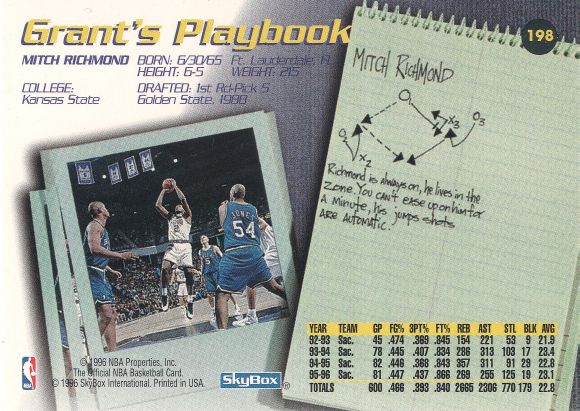 Grant's Playbook
198
MITCH RICHMOND BORN: 6/30/65 Ft. Lauderdale, Fl
HEIGHT: 6-5 WEIGHT: 215
COLLEGE: DRAFTED: 1st Rd-Pick 5
Kansas State Golden State, 1988
MITCH RICHMOND
O
X3 O3
O2
X2
Richmond is always on, he lives in the
zone. You can't ease up on him for
a minute, his jumps shots
are automatic.
54
YEAR TEAM GP FG% 3PT% FT% REB AST STL BLK AVG
92-93 Sac. 45 .474 .369 .845 154 221 53 9 21.9
93-94 Sac. 78 .445 .407 .834 286 313 103 17 23.4
94-95 Sac. 82 .446 .368 .843 357 311 91 29 22.8
95-96 Sac. 81 .447 .437 .866 269 255 125 19 23.1
TOTALS 600 .466 .393 .840 2665 2306 770 179 22.8
NBA
© 1996 NBA Properties, Inc.
The Official NBA Basketball Card.
© 1996 SkyBox International. Printed in USA.
SkyBox ®